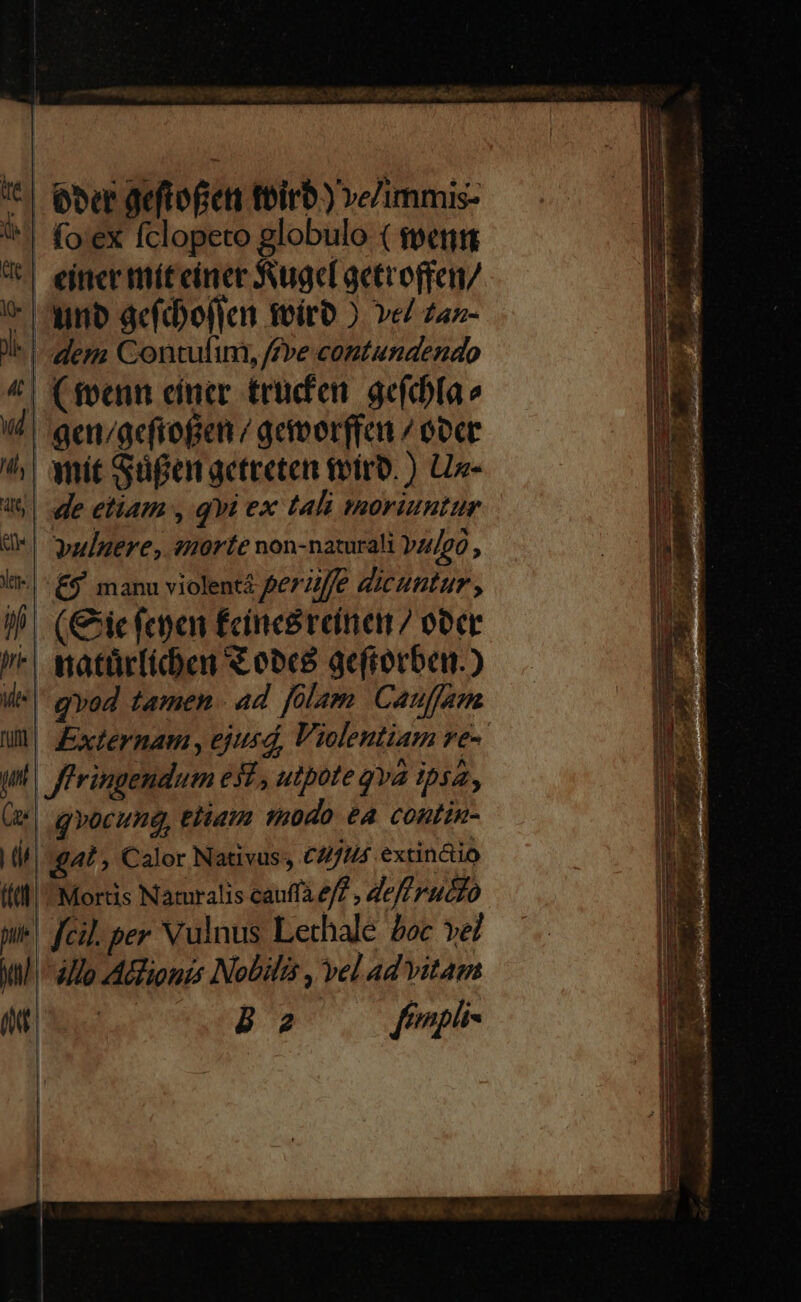 oder gestoßen wird) vel immis-
so ex sclopeto globulo ( wenn
einer mit einer Kugel getroffen/
und geschossen wird ) vel tan-
dem Contusim, sive contundendo
( wenn einer trucken geschla-
gen/gestoßen / geworffen / oder
mit Füßen getreten wird. ) Un-
de etiam , qvi ex tali moriuntur
vulnere, morte non-naturali vulgò,
& manu violentâ periisse dicuntur,
( Sie seyen keines reinen / oder
natürlichen Todes gestorben. )
qvod tamen ad solam Caussam
Externam, ejusq́; Violentiam re-
stringendum est, utpote qvâ ipsâ,
qvocunq́; etiam modo ea contin-
gat, Calor Nativus, cujus extinctio
Mortis Naturalis caussa est, destructo
scil. per Vulnus Lethale hoc vel
illo Actionis Nobilis, vel ad vitam
B 2 simpli-